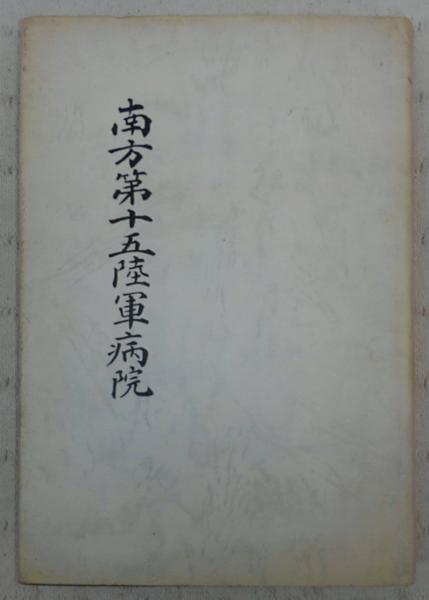 南方第十五陸軍病院